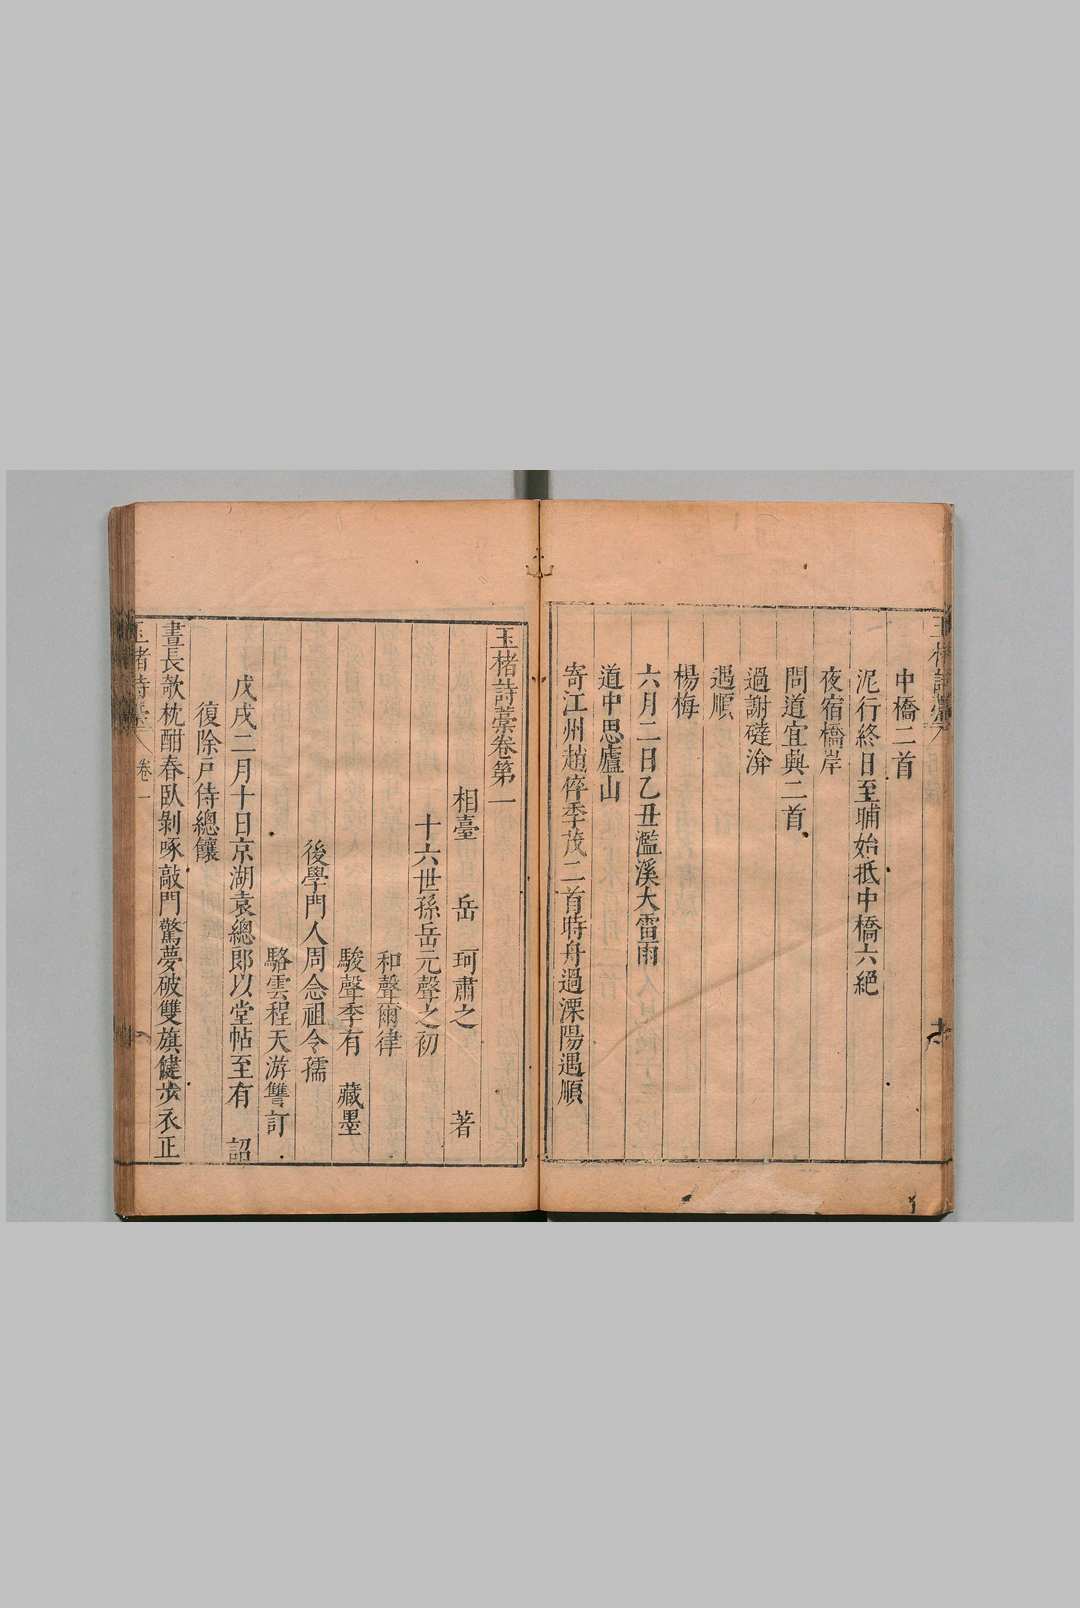 中橋二首
泥行終日至晡始抵中橋六絕
夜宿橋岸
問道宜興二首
過謝磋渰
遇順
楊梅
六月二日乙丑濫溪大雷雨
道中思廬山
寄江州趙倅季茂二首時舟過溧陽遇順
玉楮詩藁卷第一
相臺 岳 珂肅之 著
十六世孫岳元聲之初
和聲爾律
駿聲季有 藏墨
後學門人周念祖令孺
駱雲程天游讐訂
戊戌二月十日京湖袁總郎以堂帖至有 詔
復除戶侍總饟
晝長欹枕酣春臥剝啄敲門驚夢破雙旗健步衣正
玉楮詩藁 卷一